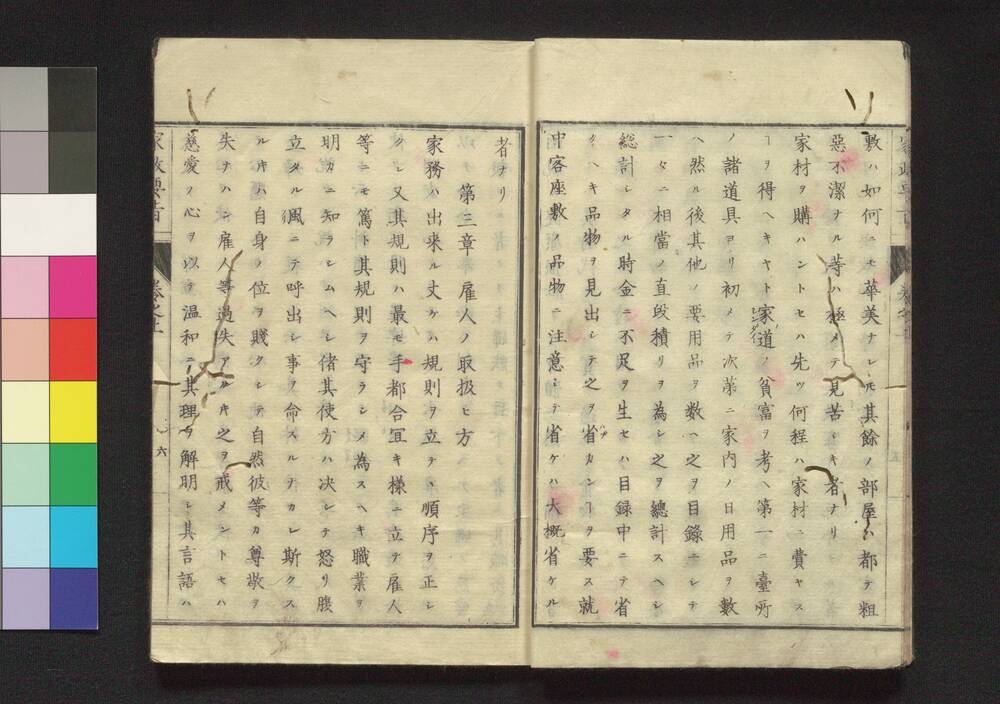 敷ハ如何ニモ華美ナレ𪜈其餘ノ部屋ハ都テ粗
惡不潔ナル等ハ極メテ見苦シキ者ナリ
家材ヲ購ハントセハ先ツ何程ハ家材ニ費ヤス
ヿヲ得ヘキヤト家道ノ貧富ヲ考ヘ第一ニ臺所
ノ諸道具ヨリ初メテ次第ニ家内ノ日用品ヲ數
ヘ然ル後其他ノ要用品ヲ数ヘ之ヲ目錄ニシテ
一々ニ相當ノ直段積リヲ為シ之ヲ總計スヘシ
総計シタル時金ニ不足ヲ生セハ目録中ニテ省
クヘキ品物ヲ見出シテ之ヲ省カンヿヲ要ス就
中客座敷ノ品物ニ注意シテ省ケハ大概省ケル
者ナリ
第三章雇人ノ取扱ヒ方
家務ハ出来ル丈ケハ規則ヲ立テヽ順序ヲ正シ
クシ又其規則ハ最モ手都合冝キ様ニ立テ雇人
等ニモ篤ト其規則ヲ守ラシメ為スヘキ職業ヲ
明カニ知ラシムヘシ偖其使方ハ决シテ怒リ腹
立タル風ニテ呼出シ事ヲ命スルナカレ斯クス
ルキハ自身ノ位ヲ賤クシテ自然彼等カ尊敬ヲ
失ナハン雇人等過失アルキ之ヲ戒メントセハ
慈愛ノ心ヲ以テ温和ニ其理ヲ解明シ其言語ハ
家政要旨
卷之上
六